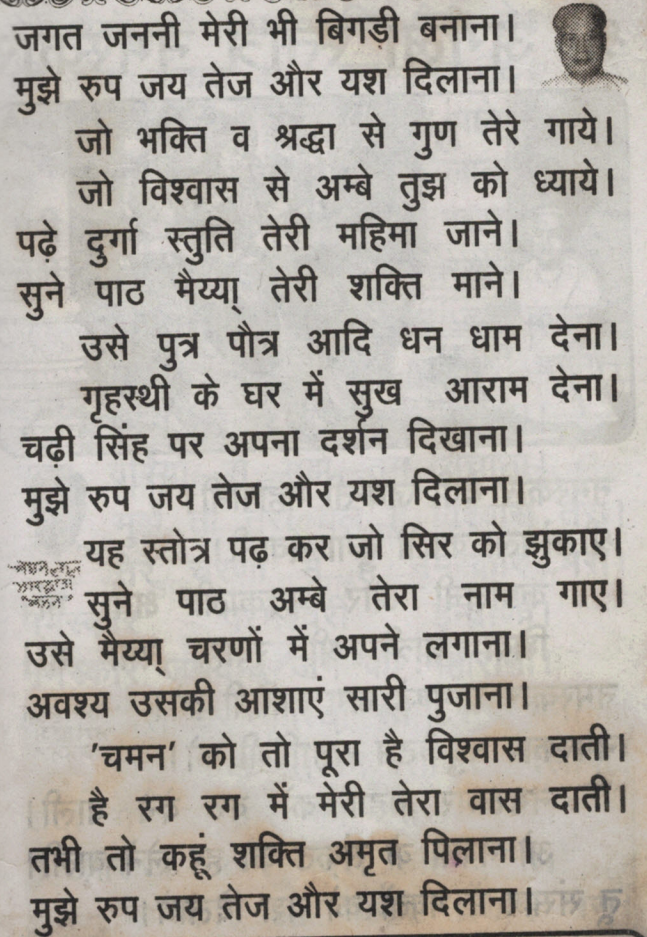 जगत जननी मेरी भी बिगड़ी बनाना।
मुझे रुप जय तेज और यश दिलाना।
जो भक्ति व श्रद्धा से गुण तेरे गाये।
जो विश्वास से अम्बे तुझ को ध्याये।
पढ़े दुर्गा स्तुति तेरी महिमा जाने।
सुने पाठ मैय्या् तेरी शक्ति माने।
उसे पुत्र पौत्र आदि धन धाम देना।
गृहस्थी के घर में सुख आराम देना।
चढ़ी सिंह पर अपना दर्शन दिखाना।
मुझे रुप जय तेज और यश दिलाना।
यह स्तोत्र पढ़ कर जो सिर को झुकाए।
सुने पाठ अम्बे तेरा नाम गाए।
उसे मैय्या् चरणों में अपने लगाना।
अवश्य उसकी आशाएं सारी पुजाना।
'चमन' को तो पूरा है विश्वास दाती।
है रग रग में मेरी तेरा वास दाती।
तभी तो कहूं शक्ति अमृत पिलाना।
मुझे रुप जय तेज और यश दिलाना।